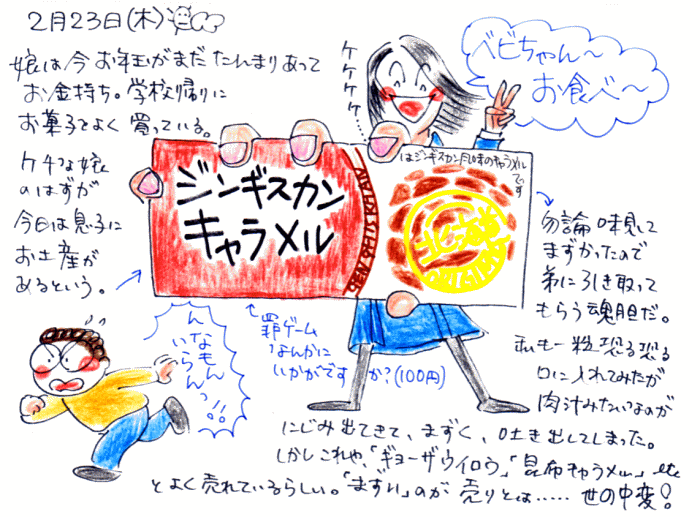 2月23日(木)
娘は今お年玉がまだたんまりあって
お金持ち。学校帰りに
お菓子をよく買っている。
ケチな娘
のはずが
今日は息子に
お土産が
あるという。
ケケケケ
ベビちゃん〜
お食べ〜
ジンギスカン
キャラメル
はジンギスカン風味のキャラメル
です
勿論味見して
まずかったので
弟に引き取って
もらう魂胆だ。
私も一粒恐る恐る
口に入れてみたが
肉汁みたいなのが
にじみ出てきて、まずく、吐き出してしまった。
しかしこれや、「ギョーザウイロウ」「昆布キャラメル」etc
とよく売れているらしい。「まずい」のが売りとは……世の中変!
罰ゲーム
なんかに
いかがですか?(100円)
んなもん
いらんっ!!